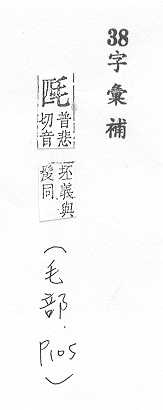 38字彙補
普悲
切音
坯義與
髬同
(毛部.P105)